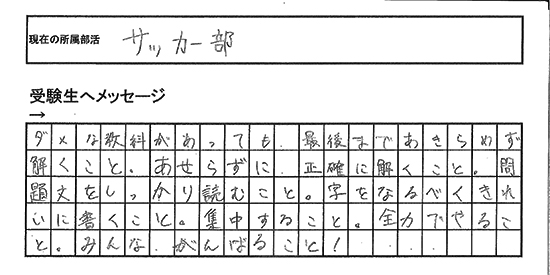 現在の所属部活 サッカー部
受験生へメッセージ
→
ダメな教科があっても、最後まであきらめず
解くこと。あせらずに、正確に解くこと。問
題文をしっかり読むこと。字をなるべくきれ
いに書くこと。集中すること。全力でやるこ
と。みんな、がんばること!